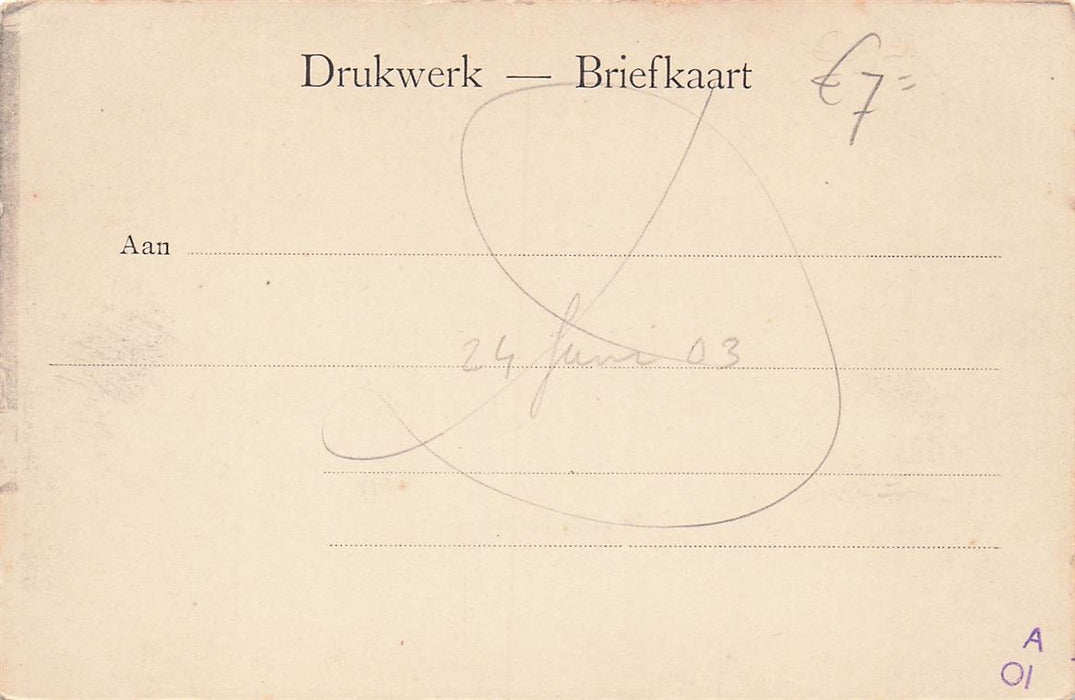 Drukwerk — Briefkaart
€7=
Aan
24 Juni 03
A
01